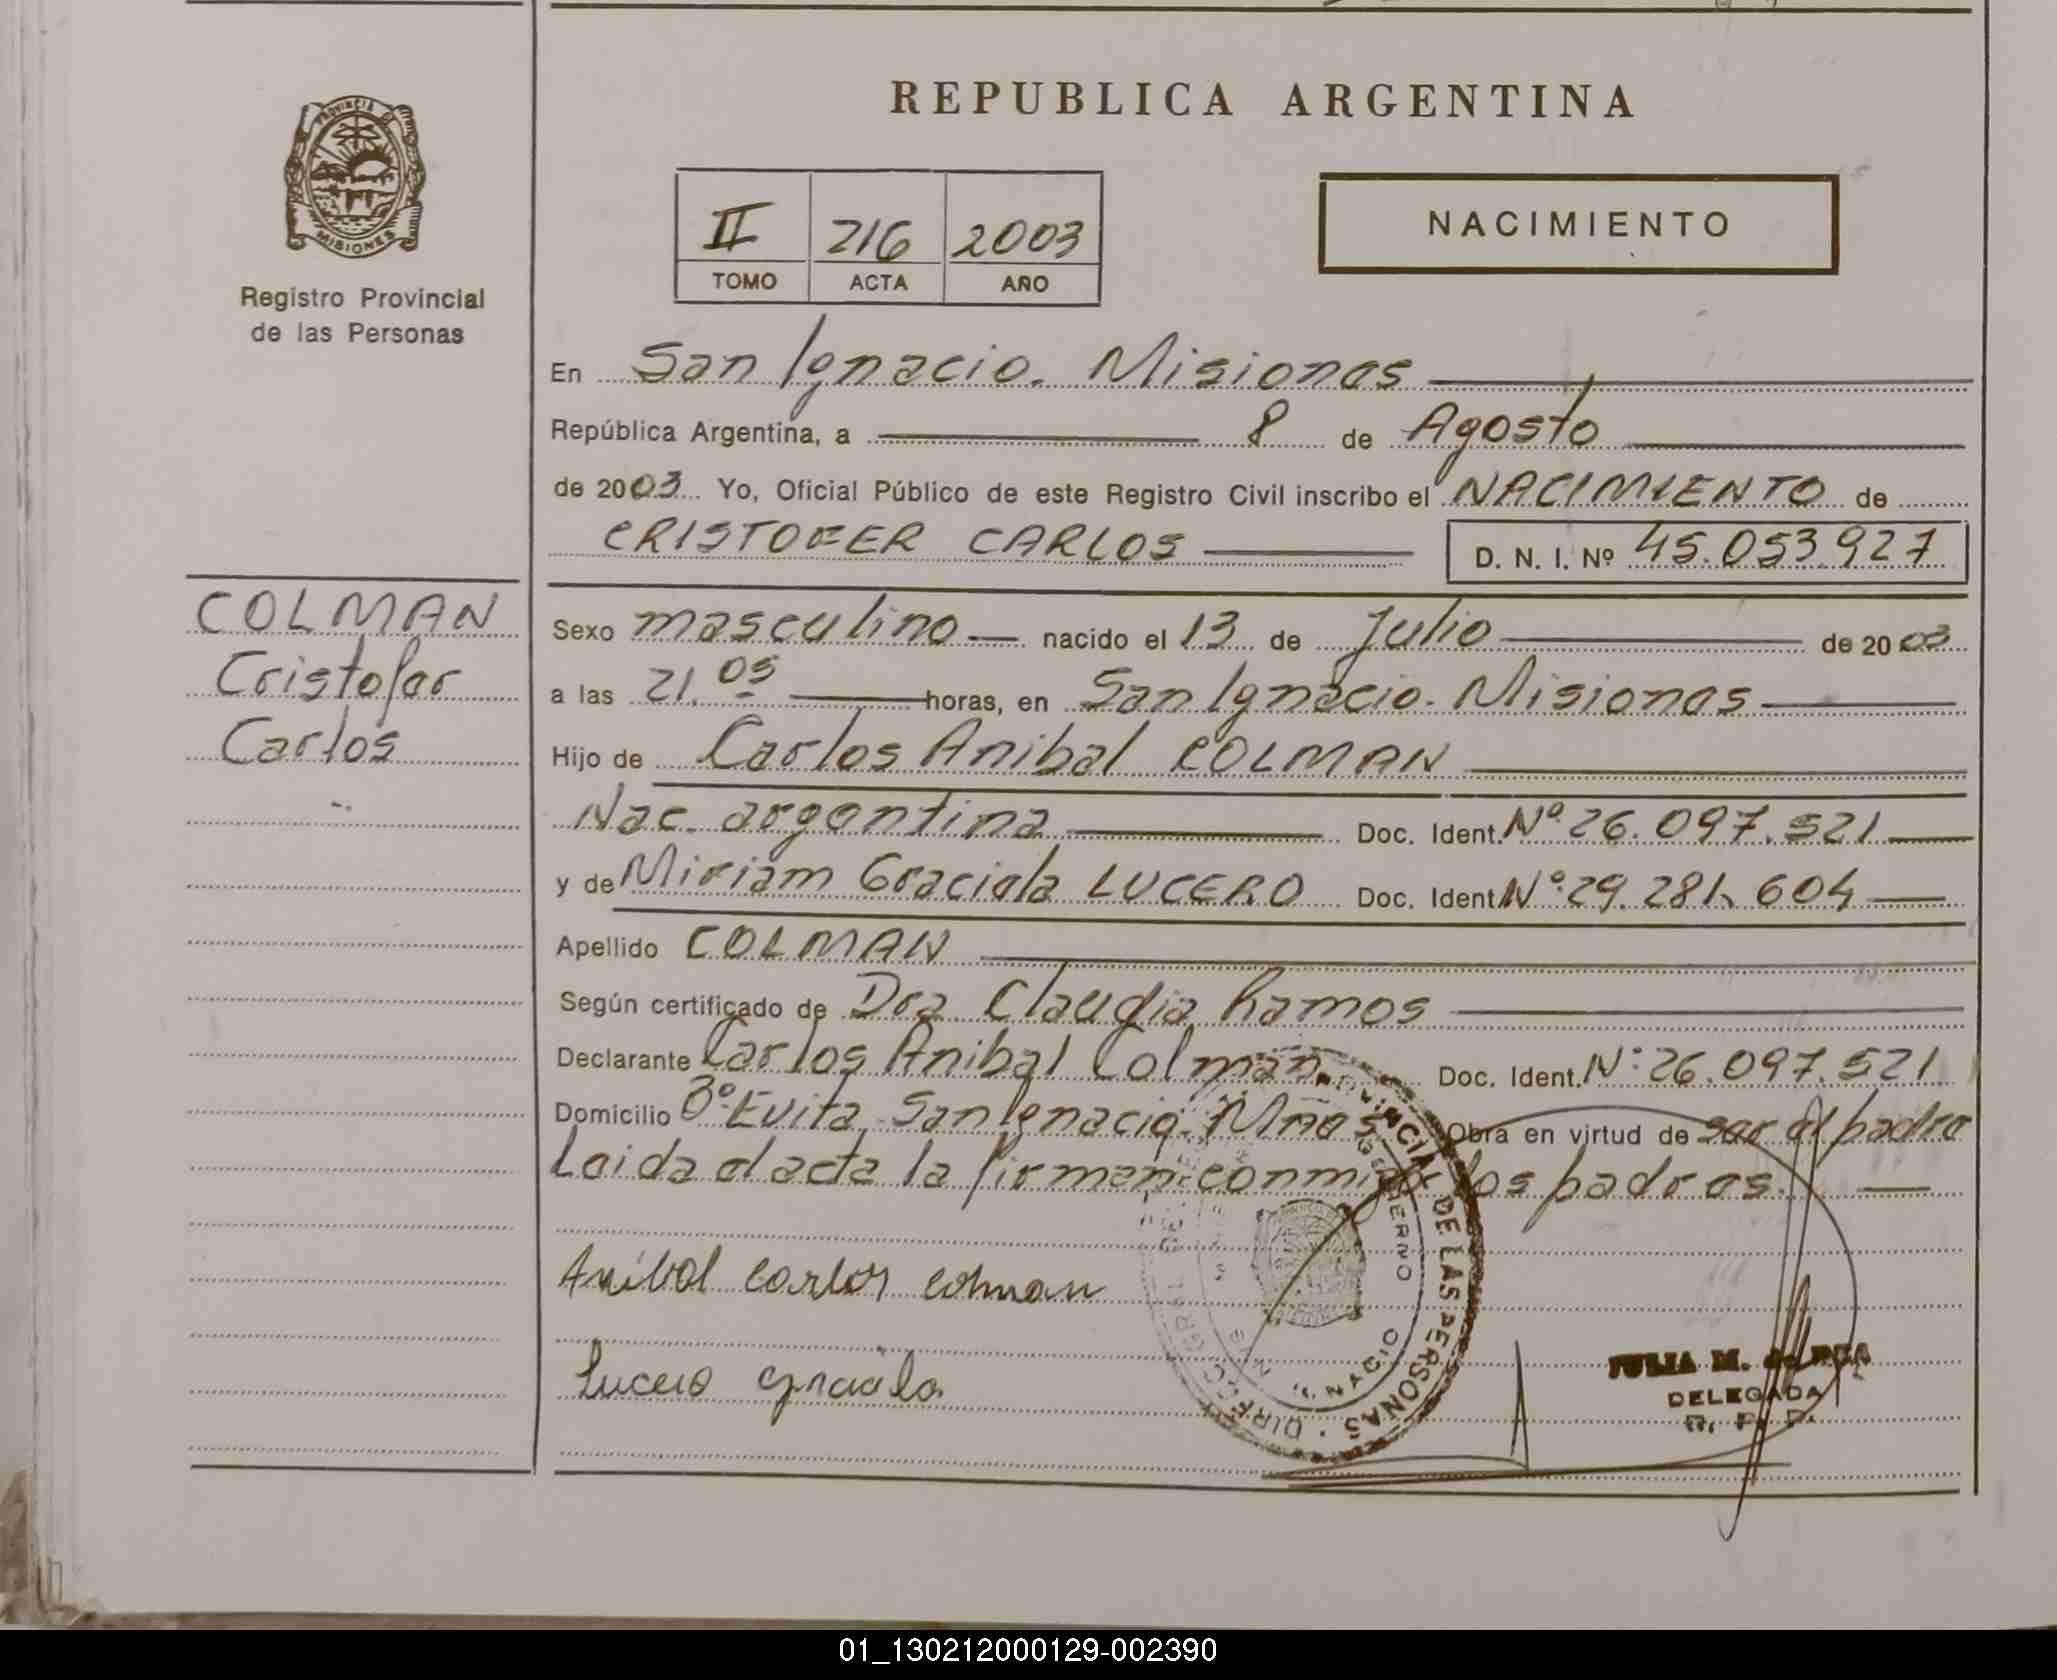 REPUBLICA ARGENTINA
PROVINCIA DE
MISIONES
Registro Provincial
de las Personas
II 216 2003
TOMO ACTA AÑO
NACIMIENTO
En San Ignacio. Misiones
República Argentina, a 8 de Agosto
de 2003 Yo, Oficial Público de este Registro Civil inscribo el NACIMIENTO de
CRISTOFER CARLOS D. N. I. Nº 45.053.927
COLMAN
Cristofer
Carlos
Sexo masculino nacido el 13 de Julio de 2003
a las 21.05 horas, en San Ignacio. Misiones
Hijo de Carlos Anibal COLMAN
Nac. argentina Doc. Ident. Nº 26.097.521
y de Miriam Graciela LUCERO Doc. Ident. Nº 29.281.604
Apellido COLMAN
Según certificado de Dra Claudia Ramos
Declarante Carlos Anibal Colman Doc. Ident. Nº 26.097.521
Domicilio Bº Evita San Ignacio. Mnes Obra en virtud de ser el padre
Leida el acta la firman conmigo los padres.
Anibal Carlos Colman
Lucero Graciela
DIRECC GRAL PROVINCIAL DE LAS PERSONAS
JULIA M. de
DELEGADA
R. P. P.
01_130212000129-002390